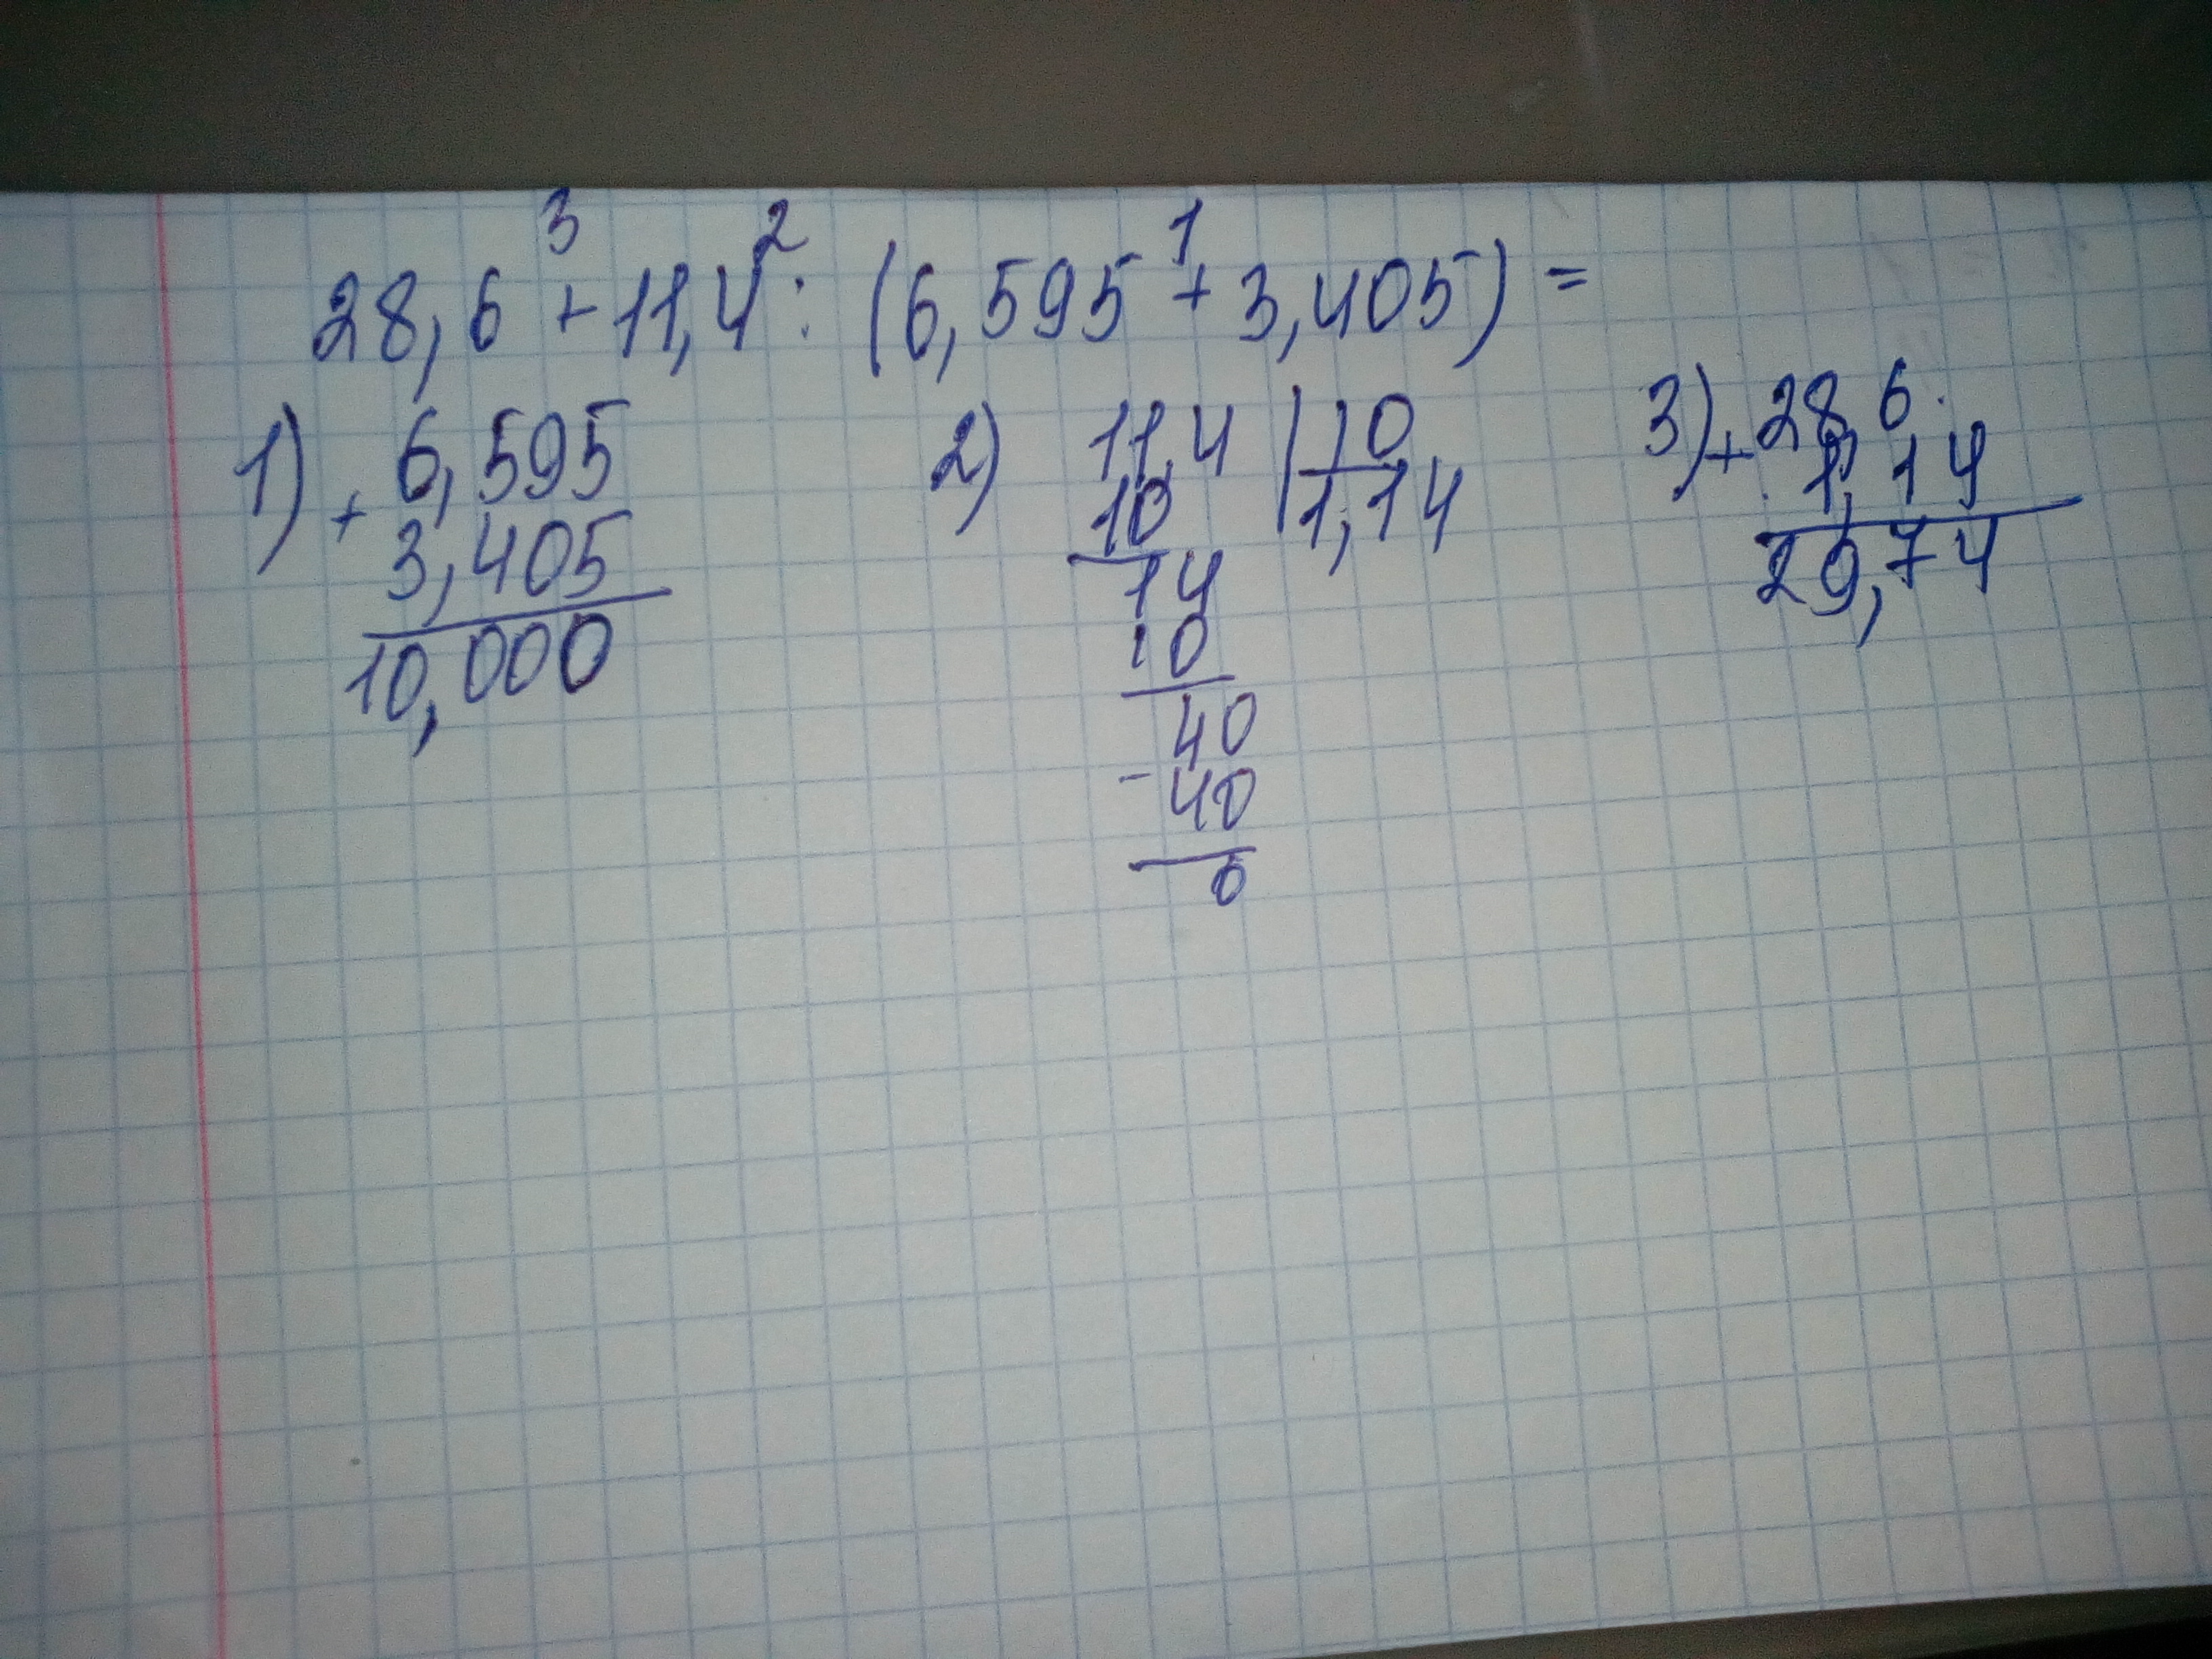 3 2 1
28,6 + 11,4 : (6,595 + 3,405) =
1) + 6,595
3,405
10,000
2) 11,4 | 10
10 | 1,14
14
10
40
- 40
0
3) + 28,6
1,14
29,74